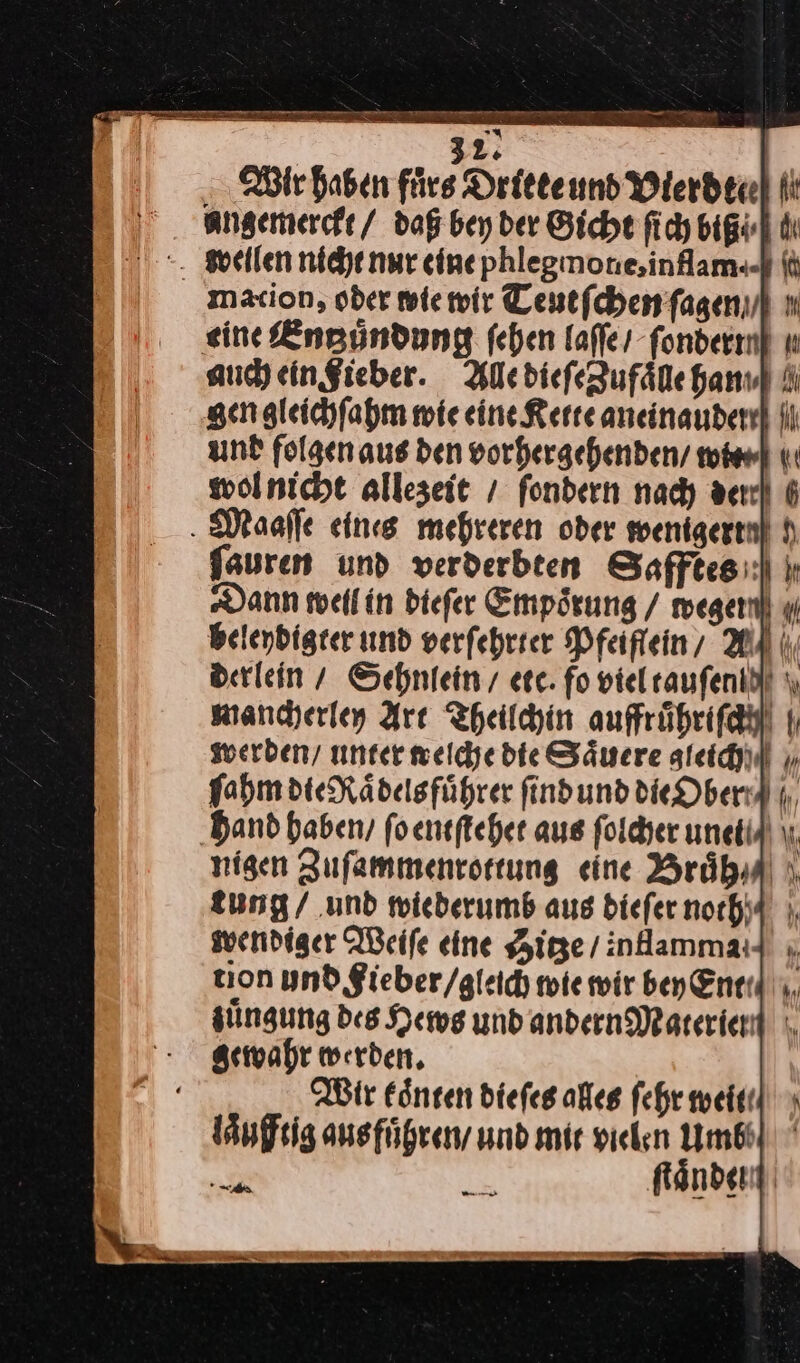 32.
Wir haben fürs Dritte und Vierdte
angemerckt / daß bey der Gicht ſich biß-
wellen nicht nur eine phlegmone, inflam-
mation, oder wie wir Teutſchen ſagen /
eine Entzündung ſehen laſſe / ſondern
auch ein Fieber. Alle dieſe Zufälle han-
gen gleichſahm wie eine Kette aneinauder
und folgen aus den vorhergehenden / wie-
wol nicht allezeit / ſondern nach der
Maaſſe eines mehreren oder wenigern
ſauren und verderbten Safftes:
Dann weil in dieſer Empörung / wegen
beleydigter und verſehrter Pfeiflein / A-
derlein / Sehnlein / etc. ſo viel tauſend
mancherley Art Theilchin auffrühriſch
werden / unter welche die Säuere gleich-
ſahm die Rädelsführer ſind und die Ober-
hand haben / ſo entſtehet aus ſolcher unei-
nigen Zuſammenrottung eine Brüh-
tung / und wiederumb aus dieſer noth-
wendiger Weiſe eine Hitze / inflamma-
tion und Fieber / gleich wie wir bey Ent-
züngung des Hews und andern Materien
gewahr werden.
Wir könten dieſes alles ſehr weit-
läufftig ausführen / und mit vielen Umb-
ſtänden